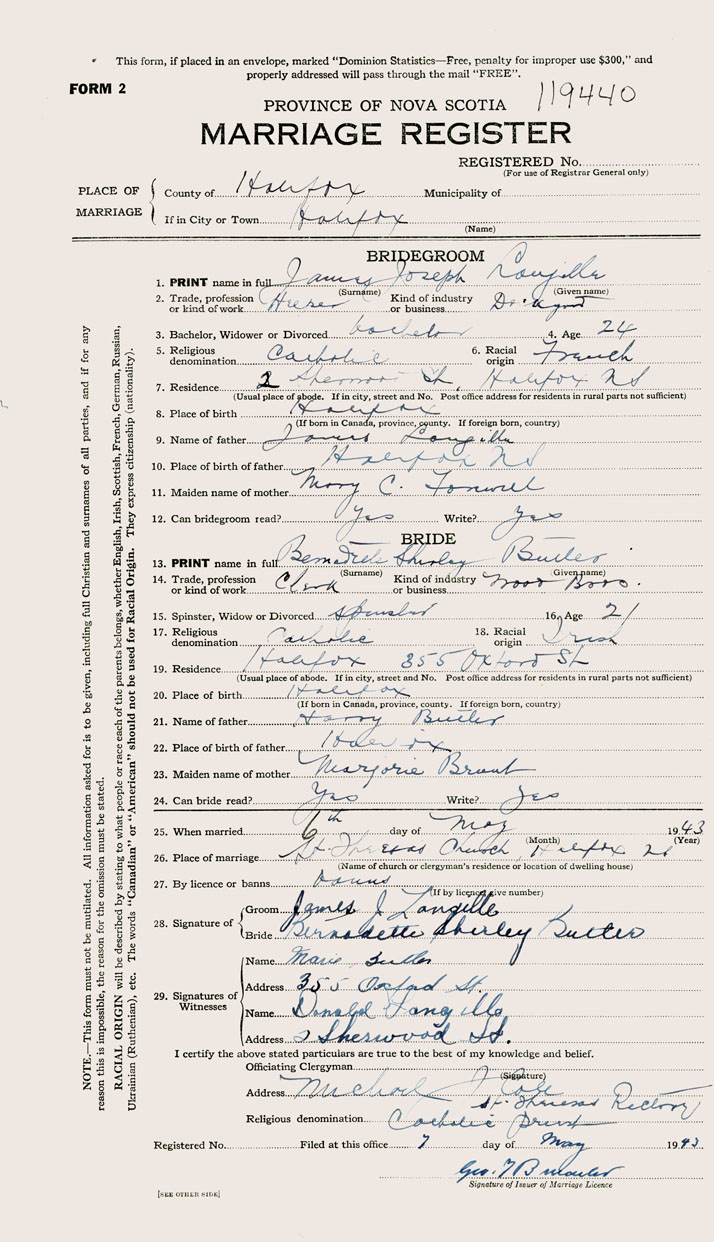 This form, if placed in an envelope, marked “Dominion Statistics—Free, penalty for improper use $300,” and
properly addressed will pass through the mail “FREE”.
FORM 2
119440
PROVINCE OF NOVA SCOTIA
MARRIAGE REGISTER
REGISTERED No.
(For use of Registrar General only)
PLACE OF MARRIAGE
County of Halifax Municipality of
If in City or Town Halifax
(Name)
BRIDEGROOM
1. PRINT name in full James Joseph Langille
(Surname) (Given name)
2. Trade, profession or kind of work Kind of industry or business
3. Bachelor, Widower or Divorced bachelor 4. Age 24
5. Religious denomination Catholic 6. Racial origin French
7. Residence 2 Sherwood St, Halifax NS
(Usual place of abode. If in city, street and No. Post office address for residents in rural parts not sufficient)
8. Place of birth Halifax
(If born in Canada, province, county. If foreign born, country)
9. Name of father James Langille
10. Place of birth of father Halifax NS
11. Maiden name of mother Mary C.
12. Can bridegroom read? Yes Write? Yes
BRIDE
13. PRINT name in full Bernadette Shirley Butler
(Surname) (Given name)
14. Trade, profession or kind of work Clerk Kind of industry or business Bros.
15. Spinster, Widow or Divorced Spinster 16. Age 21
17. Religious denomination Catholic 18. Racial origin Irish
19. Residence Halifax 355 Oxford St
(Usual place of abode. If in city, street and No. Post office address for residents in rural parts not sufficient)
20. Place of birth Halifax
(If born in Canada, province, county. If foreign born, country)
21. Name of father Harry Butler
22. Place of birth of father Halifax
23. Maiden name of mother Marjorie
24. Can bride read? Yes Write? Yes
25. When married 6th day of May 1943
(Month) (Year)
26. Place of marriage St. Theresas Church, Halifax NS
(Name of church or clergyman's residence or location of dwelling house)
27. By licence or banns banns
(If by licence give number)
28. Signature of
Groom James J Langille
Bride Bernadette Shirley Butler
29. Signatures of Witnesses
Name Marie Butler
Address 355 Oxford St.
Name Donald Langille
Address 2 Sherwood St.
I certify the above stated particulars are true to the best of my knowledge and belief.
Officiating Clergyman
(Signature)
Michael J Cole
Address St. Theresas Rectory
Religious denomination Catholic priest
Registered No. Filed at this office 7 day of May 1943
Geo.
Signature of Issuer of Marriage Licence
[SEE OTHER SIDE]
NOTE.—This form must not be mutilated. All information asked for is to be given, including full Christian and surnames of all parties, and if for any
reason this is impossible, the reason for the omission must be stated.
RACIAL ORIGIN will be described by stating to what people or race each of the parents belongs, whether English, Irish, Scottish, French, German, Russian,
Ukrainian (Ruthenian), etc. The words “Canadian” or “American” should not be used for Racial Origin. They express citizenship (nationality).